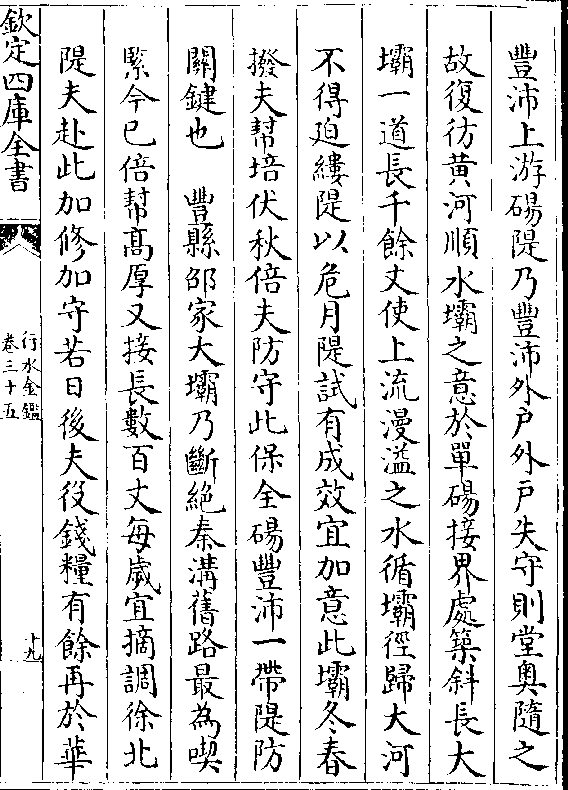 豐沛上游碭隄乃豐沛外戶外戶失守則堂奧隨之
故復彷黄河順水壩之意於單碭接界處築斜長大
壩一道長千餘丈使上流漫溢之水循壩徑歸大河
不得廹縷隄以危月隄試有成效宜加意此壩冬春
撥夫幫培伏秋倍夫防守此保全碭豐沛一帶隄防
關鍵也　豐縣邵家大壩乃斷絶秦溝舊路最為喫
緊今已倍幫高厚又接長數百丈每歲宜摘調徐北
隄夫赴此加修加守若日後夫役錢糧有餘再於華
欽定四庫全書
行水金鑑
卷三十五
十九